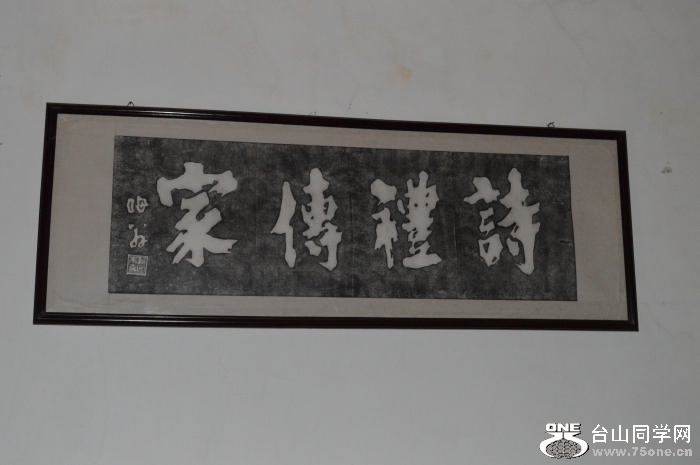 詩禮傳家
晦翁
ONE 台山同学网
www.75one.cn